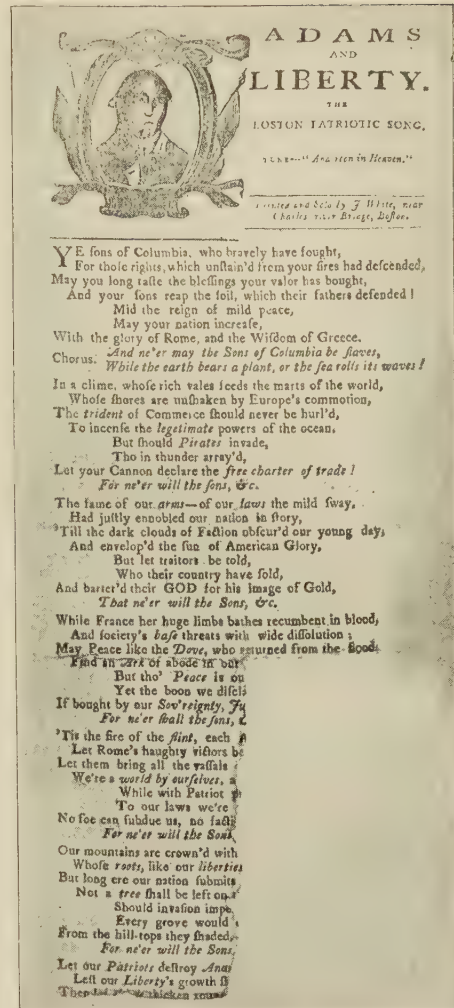 ADAMS
AND
LIBERTY.
THE
BOSTON PATRIOTIC SONG.
TUNE—"Anacreon in Heaven."
Printed and Sold by J White, near
Charles River Bridge, Boston.
YE ſons of Columbia, who bravely have fought,
For thoſe rights, which unſtain'd from your ſires had deſcended,
May you long taſte the bleſſings your valor has bought,
And your ſons reap the ſoil, which their fathers defended!
Mid the reign of mild peace,
May your nation increaſe,
With the glory of Rome, and the Wiſdom of Greece.
Chorus. And ne'er may the Sons of Columbia be ſlaves,
While the earth bears a plant, or the ſea rolls its waves!
In a clime, whoſe rich vales feeds the marts of the world,
Whoſe ſhores are unſhaken by Europe's commotion,
The trident of Commerce ſhould never be hurl'd,
To incenſe the legetimate powers of the ocean.
But ſhould Pirates invade,
Tho in thunder array'd,
Let your Cannon declare the free charter of trade!
For ne'er will the ſons, &c.
The fame of our arms—of our laws the mild ſway,
Had juſtly ennobled our nation in ſtory,
'Till the dark clouds of Faction obſcur'd our young day,
And envelop'd the ſun of American Glory,
But let traitors be told,
Who their country have ſold,
And barter'd their GOD for his image of Gold,
That ne'er will the Sons, &c.
While France her huge limbs bathes recumbent in blood,
And ſociety's baſe threats with wide diſſolution;
May Peace like the Dove, who returned from the flood,
Find an Ark of abode in our
But tho' Peace is ou
Yet the boon we diſcl
If bought by our Sov'reignty, Ju
For ne'er ſhall the ſons,
'Tis the fire of the flint, each
Let Rome's haughty victors be
Let them bring all the vaſſals
We're a world by ourſelves, a
While with Patriot
To our laws we're
No foe can ſubdue us, no facti
For ne'er will the Sons,
Our mountains are crown'd with
Whoſe roots, like our liberties
But long ere our nation ſubmits
Not a tree ſhall be left on
Should invaſion impe
Every grove would
From the hill-tops they ſhaded,
For ne'er will the Sons,
Let our Patriots deſtroy Anar
Leſt our Liberty's growth
thicken